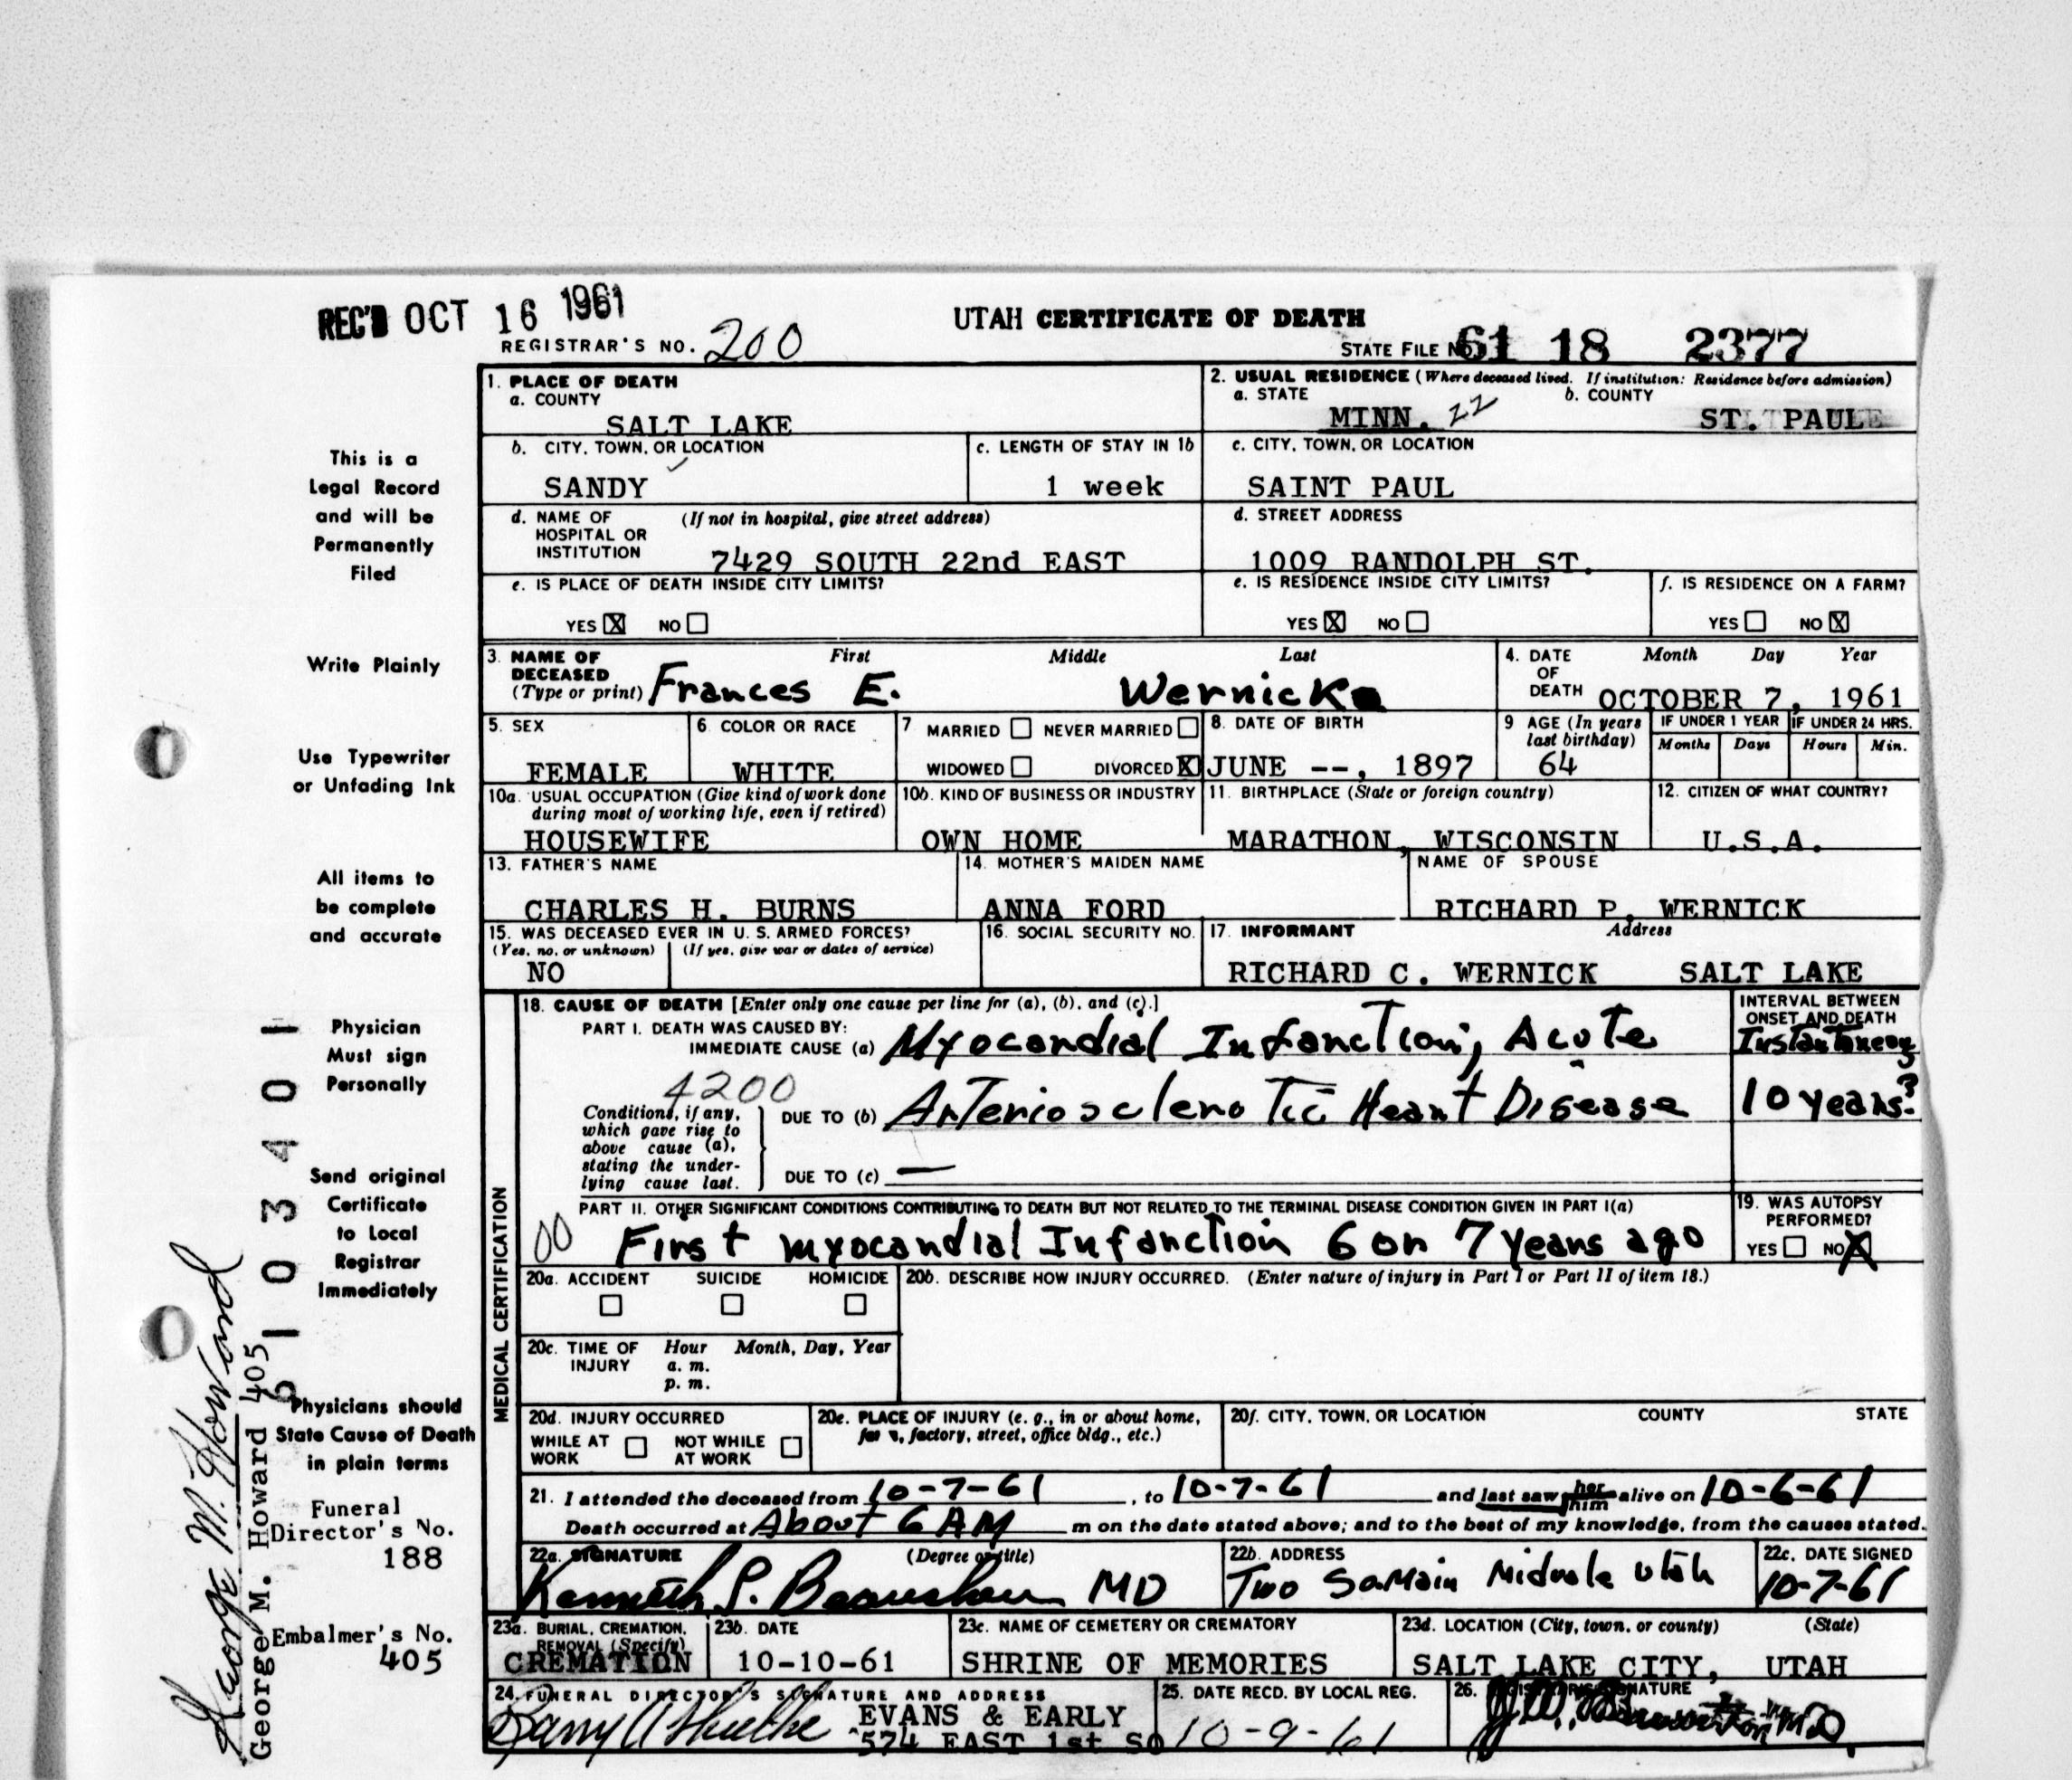 REC'D OCT 16 1961
UTAH CERTIFICATE OF DEATH
REGISTRAR'S NO. 200
STATE FILE NO. 61 18 2377
1. PLACE OF DEATH
a. COUNTY
SALT LAKE
2. USUAL RESIDENCE (Where deceased lived. If institution: Residence before admission)
a. STATE b. COUNTY
MINN. 22 ST. PAUL
b. CITY, TOWN, OR LOCATION
SANDY
c. LENGTH OF STAY IN 1b
1 week
c. CITY, TOWN, OR LOCATION
SAINT PAUL
d. NAME OF HOSPITAL OR INSTITUTION (If not in hospital, give street address)
7429 SOUTH 22nd EAST
d. STREET ADDRESS
1009 RANDOLPH ST.
e. IS PLACE OF DEATH INSIDE CITY LIMITS?
YES X NO
e. IS RESIDENCE INSIDE CITY LIMITS?
YES X NO
f. IS RESIDENCE ON A FARM?
YES NO X
3. NAME OF DECEASED (Type or print) First Middle Last
Frances E. Wernick
4. DATE OF DEATH Month Day Year
OCTOBER 7, 1961
5. SEX
FEMALE
6. COLOR OR RACE
WHITE
7 MARRIED NEVER MARRIED
WIDOWED DIVORCED X
8. DATE OF BIRTH
JUNE --, 1897
9 AGE (In years last birthday)
64
IF UNDER 1 YEAR IF UNDER 24 HRS.
Months Days Hours Min.
10a. USUAL OCCUPATION (Give kind of work done during most of working life, even if retired)
HOUSEWIFE
10b. KIND OF BUSINESS OR INDUSTRY
OWN HOME
11. BIRTHPLACE (State or foreign country)
MARATHON, WISCONSIN
12. CITIZEN OF WHAT COUNTRY?
U.S.A.
13. FATHER'S NAME
CHARLES H. BURNS
14. MOTHER'S MAIDEN NAME
ANNA FORD
NAME OF SPOUSE
RICHARD P. WERNICK
15. WAS DECEASED EVER IN U. S. ARMED FORCES?
(Yes, no, or unknown) (If yes, give war or dates of service)
NO
16. SOCIAL SECURITY NO.
17. INFORMANT Address
RICHARD C. WERNICK SALT LAKE
MEDICAL CERTIFICATION
18. CAUSE OF DEATH [Enter only one cause per line for (a), (b), and (c).]
INTERVAL BETWEEN ONSET AND DEATH
PART I. DEATH WAS CAUSED BY:
IMMEDIATE CAUSE (a) Myocardial Infarction, Acute
4200
Conditions, if any, which gave rise to above cause (a), stating the underlying cause last.
DUE TO (b) Arteriosclerotic Heart Disease 10 years?
DUE TO (c) —
PART II. OTHER SIGNIFICANT CONDITIONS CONTRIBUTING TO DEATH BUT NOT RELATED TO THE TERMINAL DISEASE CONDITION GIVEN IN PART I(a)
00 First myocardial Infarction 6 or 7 years ago
19. WAS AUTOPSY PERFORMED?
YES NO X
20a. ACCIDENT SUICIDE HOMICIDE
20b. DESCRIBE HOW INJURY OCCURRED. (Enter nature of injury in Part I or Part II of item 18.)
20c. TIME OF INJURY Hour Month, Day, Year
a. m.
p. m.
20d. INJURY OCCURRED
WHILE AT WORK NOT WHILE AT WORK
20e. PLACE OF INJURY (e. g., in or about home, farm, factory, street, office bldg., etc.)
20f. CITY, TOWN, OR LOCATION COUNTY STATE
21. I attended the deceased from 10-7-61, to 10-7-61 and last saw her him alive on 10-6-61
Death occurred at About 6 AM m on the date stated above; and to the best of my knowledge, from the causes stated.
22a. SIGNATURE (Degree or title)
Kenneth MD
22b. ADDRESS
Two So Main Midvale Utah
22c. DATE SIGNED
10-7-61
23a. BURIAL, CREMATION, REMOVAL (Specify)
CREMATION
23b. DATE
10-10-61
23c. NAME OF CEMETERY OR CREMATORY
SHRINE OF MEMORIES
23d. LOCATION (City, town, or county) (State)
SALT LAKE CITY, UTAH
24. FUNERAL DIRECTOR'S SIGNATURE AND ADDRESS
EVANS & EARLY
574 EAST 1st SO
25. DATE RECD. BY LOCAL REG.
10-9-61
26. REGISTRAR'S SIGNATURE
This is a
Legal Record
and will be
Permanently
Filed
Write Plainly
Use Typewriter
or Unfading Ink
All items to
be complete
and accurate
Physician
Must sign
Personally
Send original
Certificate
to Local
Registrar
Immediately
Physicians should
State Cause of Death
in plain terms
Funeral
Director's No.
188
Embalmer's No.
405
George M. Howard
George M. Howard 405
6103401